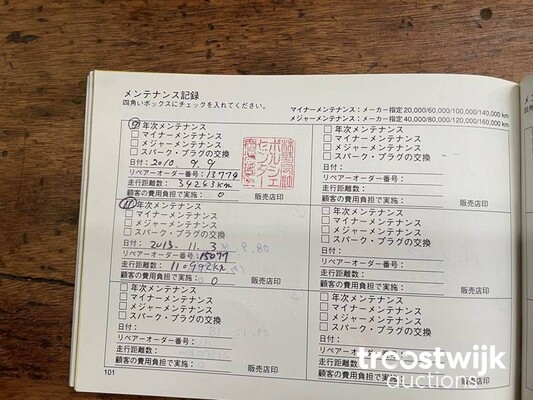 メンテナンス記録
四角いボックスにチェックを入れてください。
マイナーメンテナンス：メーカー指定20,000/60,000/100,000/140,000 km
メジャーメンテナンス：メーカー指定40,000/80,000/120,000/160,000 km
⑨ 年次メンテナンス
□ マイナーメンテナンス
□ メジャーメンテナンス
□ スパーク・プラグの交換
日付：2010. 9. 9
リペアーオーダー番号：13774
走行距離数：34243km
顧客の費用負担で実施：0 販売店印
株式会社
ポルシェ
センター
□ 年次メンテナンス
□ マイナーメンテナンス
□ メジャーメンテナンス
□ スパーク・プラグの交換
日付：
リペアーオーダー番号：
走行距離数：
顧客の費用負担で実施： 販売店印
⑪ 年次メンテナンス
□ マイナーメンテナンス
□ メジャーメンテナンス
□ スパーク・プラグの交換
日付：2013. 11. 3
リペアーオーダー番号：15077
走行距離数：110992km
顧客の費用負担で実施：0 販売店印
□ 年次メンテナンス
□ マイナーメンテナンス
□ メジャーメンテナンス
□ スパーク・プラグの交換
日付：
リペアーオーダー番号：
走行距離数：
顧客の費用負担で実施： 販売店印
□ 年次メンテナンス
□ マイナーメンテナンス
□ メジャーメンテナンス
□ スパーク・プラグの交換
日付：
リペアーオーダー番号：
走行距離数：
顧客の費用負担で実施： 販売店印
□ 年次メンテナンス
□ マイナーメンテナンス
□ メジャーメンテナンス
□ スパーク・プラグの交換
日付：
リペアーオーダー番号：
走行距離数：
顧客の費用負担で実施： 販売店印
101
troostwijk
auctions